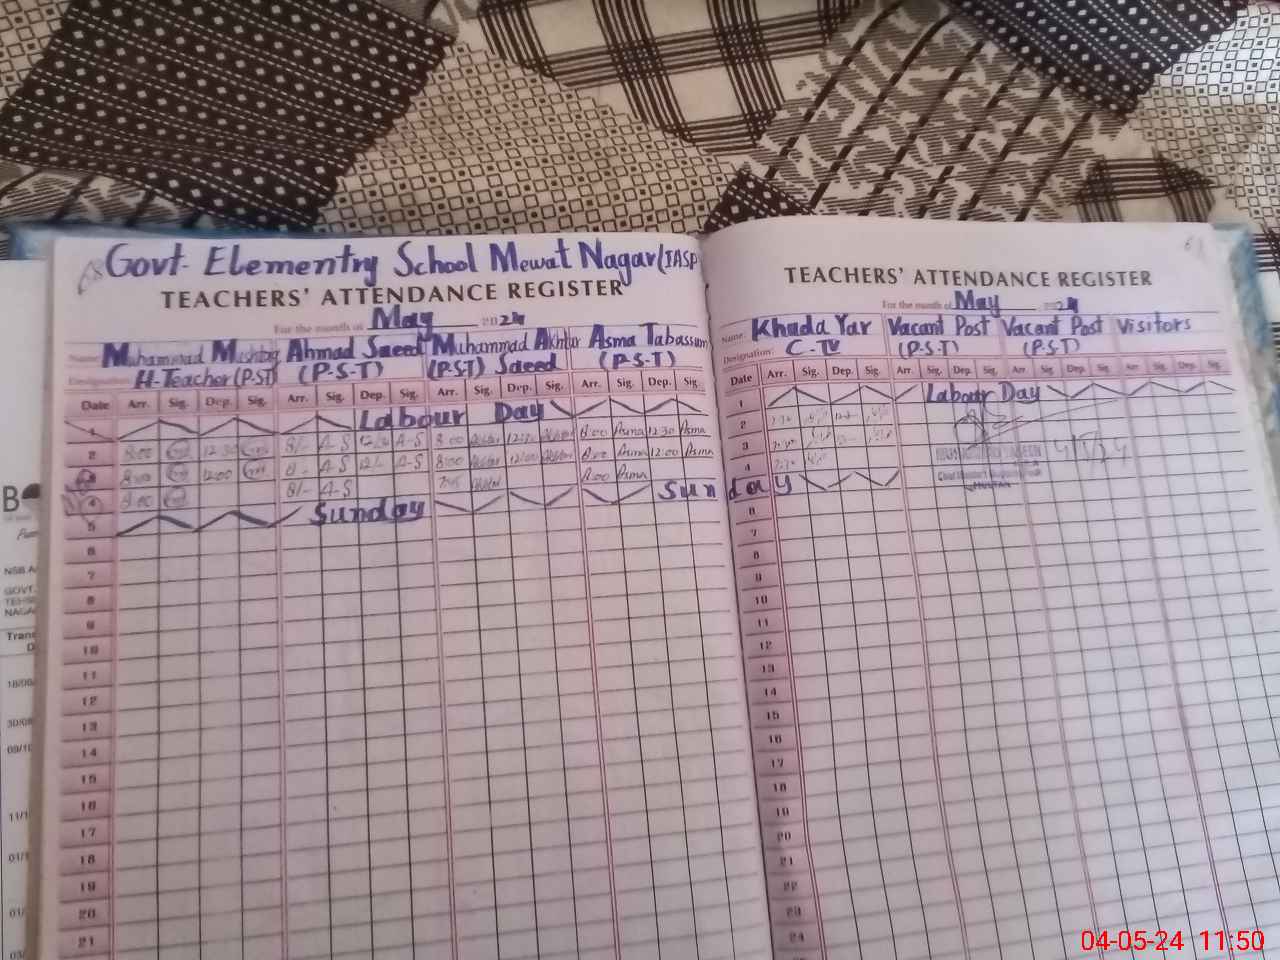 68 Govt. Elementry School Mewat Nagar (IASP
TEACHERS' ATTENDANCE REGISTER
For the month of May 2024
Name: Muhammad Mushtaq Ahmad Saeed Muhammad Akhtar Asma Tabassum
Saeed
Designation: H-Teacher (P-ST) (P-S-T) (P-ST) (P-S-T)
Date Arr. Sig. Dep. Sig. Arr. Sig. Dep. Sig. Arr. Sig. Dep. Sig. Arr. Sig. Dep. Sig.
1 Labour Day
2 8:00 12:30 8/- A-S 12/30 A-S 8:00 12:30 8:00 Asma 12:30 Asma
3 8:00 12:00 8/- A-S 12/- A-S 8:00 12:00 8:00 Asma 12:00 Asma
4 8:00 8/- A-S 7:45 8:00 Asma
5 Sunday Sun
6
7
8
9
10
11
12
13
14
15
16
17
18
19
20
21
TEACHERS' ATTENDANCE REGISTER
For the month of May 2024
Name: Khuda Yar Vacant Post Vacant Post Visitors
Designation: C-IV (P-S-T) (P-S-T)
Date Arr. Sig. Dep. Sig. Arr. Sig. Dep. Sig. Arr. Sig. Dep. Sig. Arr. Sig. Dep. Sig.
1 Labour Day
2 7:30
3 7:30 4/5/24
4 7:30
day
6
7
8
9
10
11
12
13
14
15
16
17
18
19
20
21
22
23
24
B
NSB A
GOVT.
TEHS
NAGA
Trans
D
18/08
30/08
09/10
11/1
01/1
01/
03/
04-05-24 11:50